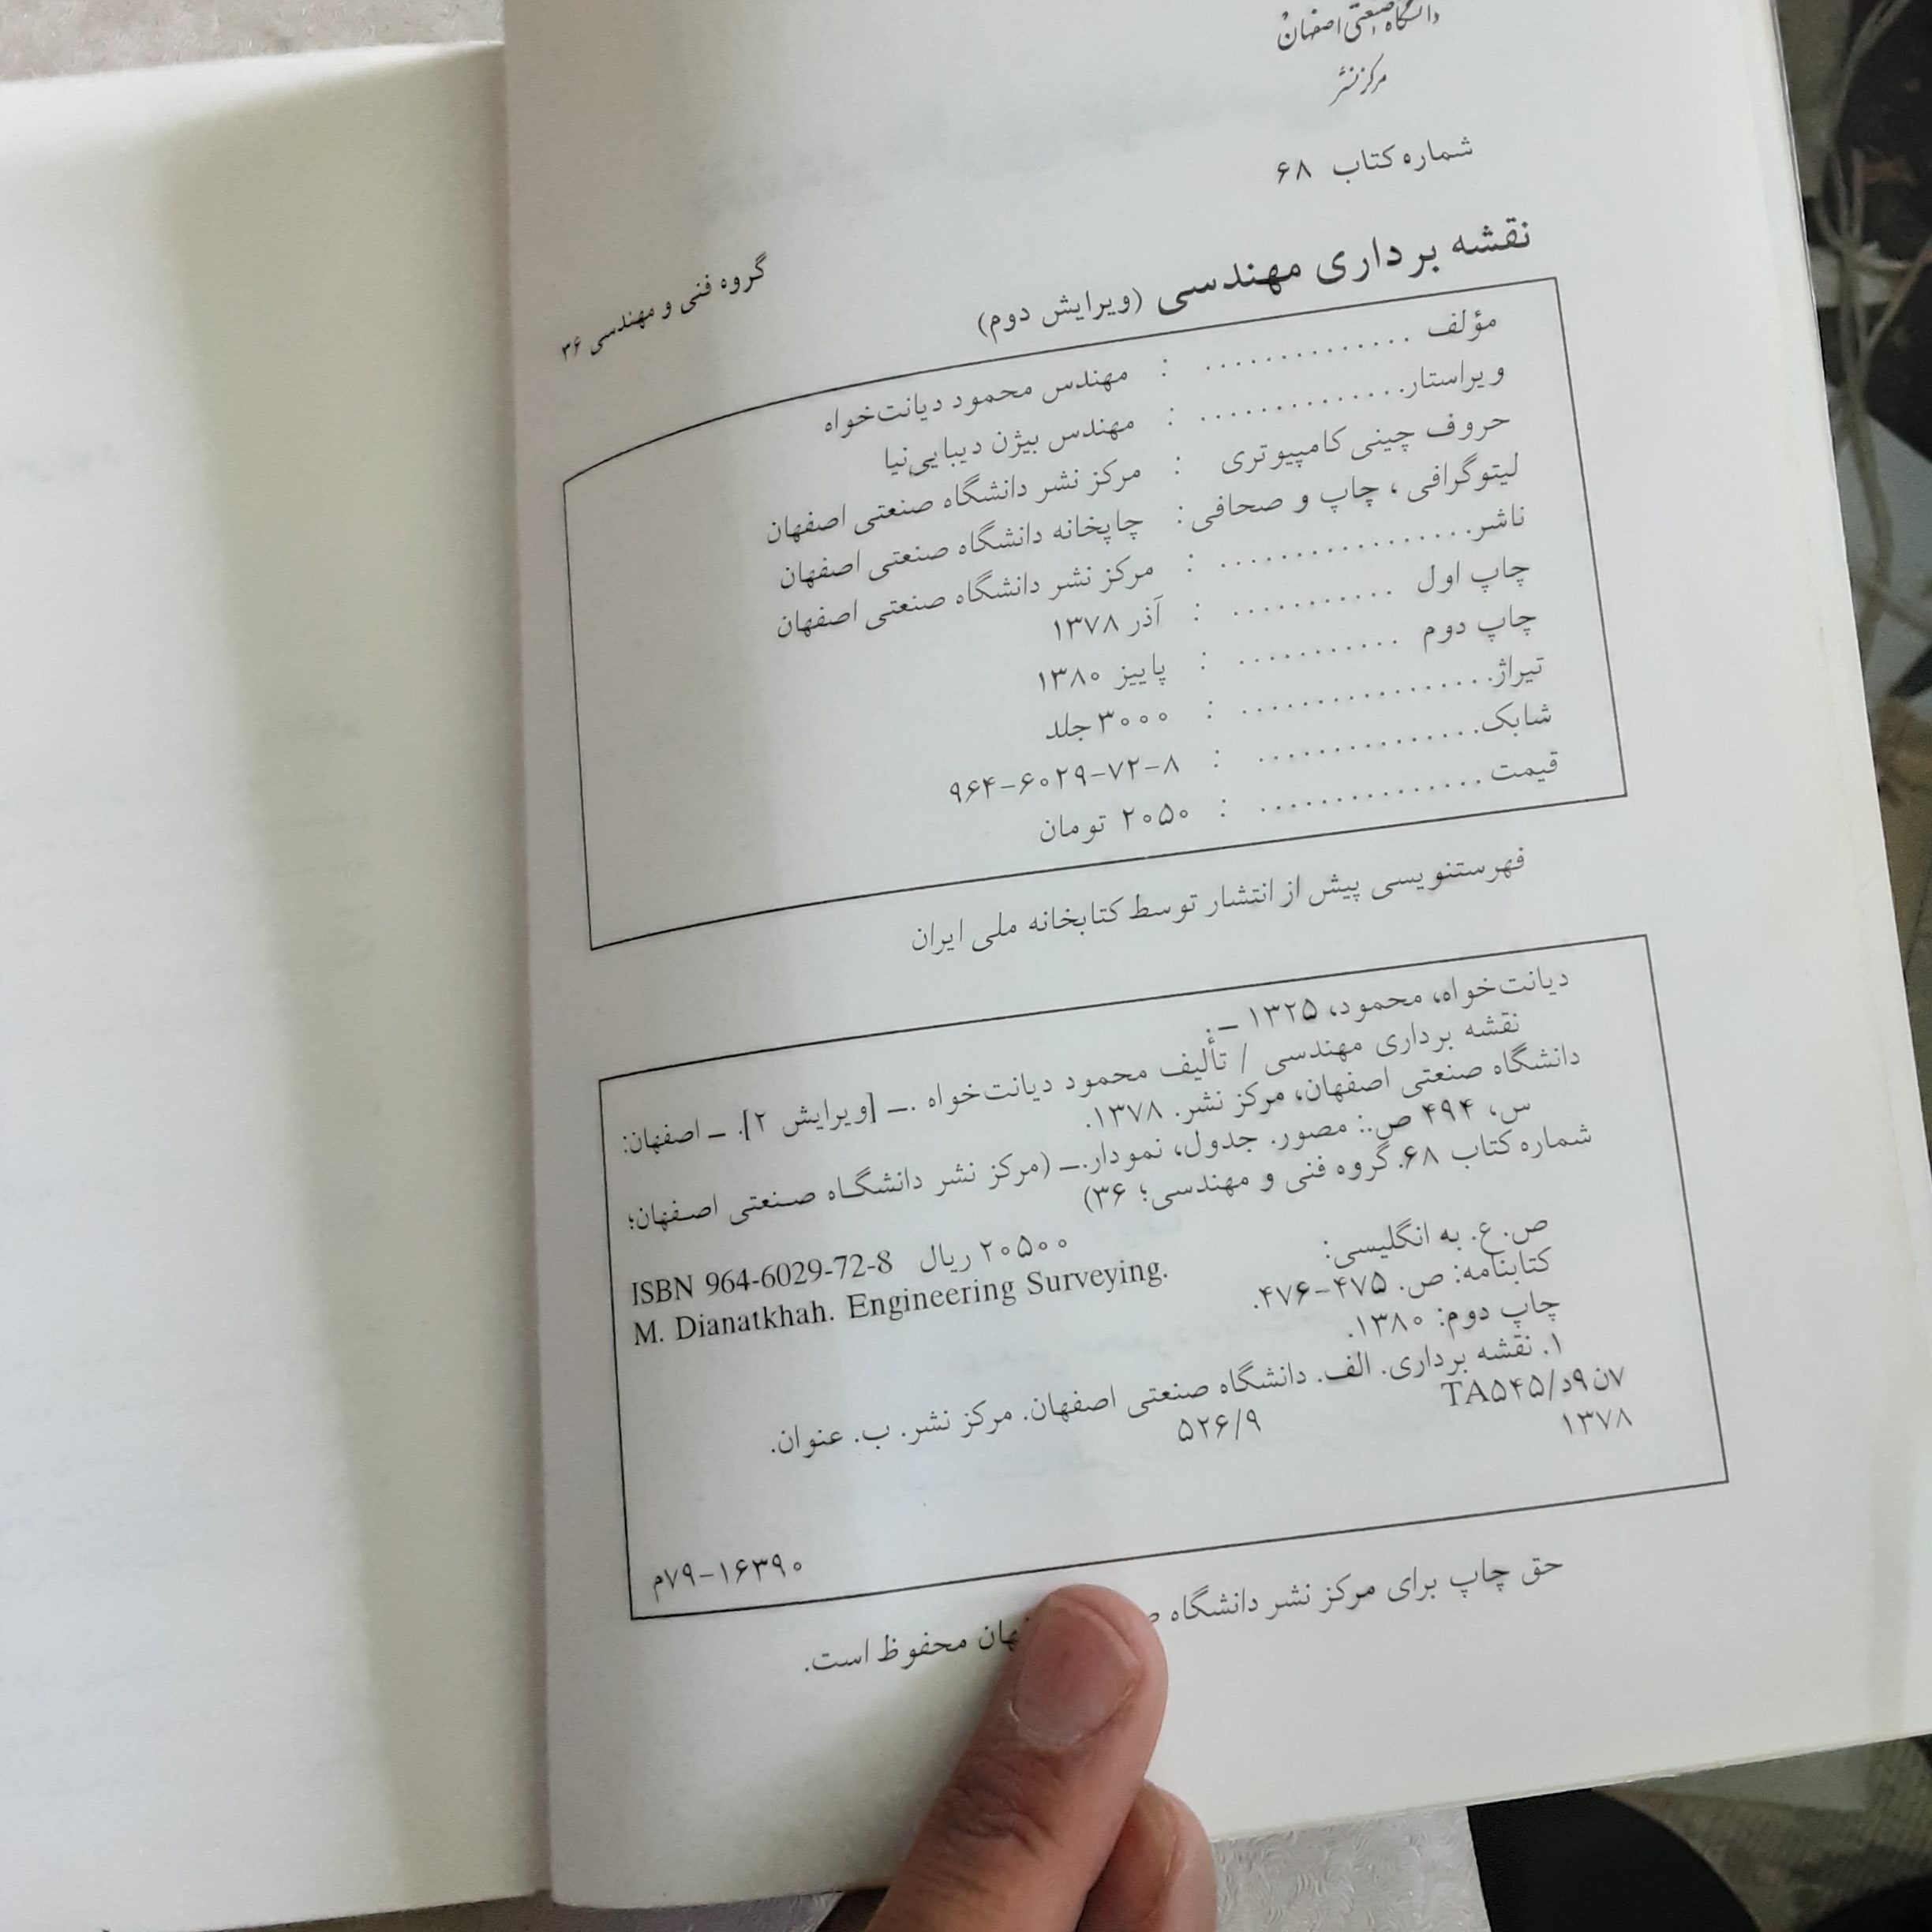 دانشگاه صنعتی اصفهان
مرکز نشر
شماره کتاب ۶۸
گروه فنی و مهندسی ۳۶
نقشه برداری مهندسی (ویرایش دوم)
مؤلف .............. : مهندس محمود دیانت‌خواه
ویراستار.............. : مهندس بیژن دیبایی‌نیا
حروف چینی کامپیوتری : مرکز نشر دانشگاه صنعتی اصفهان
لیتوگرافی ، چاپ و صحافی : چاپخانه دانشگاه صنعتی اصفهان
ناشر................. : مرکز نشر دانشگاه صنعتی اصفهان
چاپ اول ........... : آذر ۱۳۷۸
چاپ دوم ........... : پاییز ۱۳۸۰
تیراژ................. : ۳۰۰۰ جلد
شابک............... : ۹۶۴-۶۰۲۹-۷۲-۸
قیمت ............... : ۲۰۵۰ تومان
فهرستنویسی پیش از انتشار توسط کتابخانه ملی ایران
دیانت‌خواه، محمود، ۱۳۲۵ –.
نقشه برداری مهندسی / تألیف محمود دیانت‌خواه .– [ویرایش ۲]. – اصفهان:
دانشگاه صنعتی اصفهان، مرکز نشر. ۱۳۷۸.
س، ۴۹۴ ص.: مصور. جدول، نمودار.– (مرکز نشر دانشگاه صنعتی اصفهان؛
شماره کتاب ۶۸. گروه فنی و مهندسی؛ ۳۶)
ISBN 964-6029-72-8 ۲۰۵۰۰ ریال
ص. ع. به انگلیسی: M. Dianatkhah. Engineering Surveying.
کتابنامه: ص. ۴۷۵-۴۷۶.
چاپ دوم: ۱۳۸۰.
۱. نقشه برداری. الف. دانشگاه صنعتی اصفهان. مرکز نشر. ب. عنوان.
۷ن۹د/TA۵۴۵ ۵۲۶/۹
۱۳۷۸
م۷۹-۱۶۳۹۰
حق چاپ برای مرکز نشر دانشگاه محفوظ است.